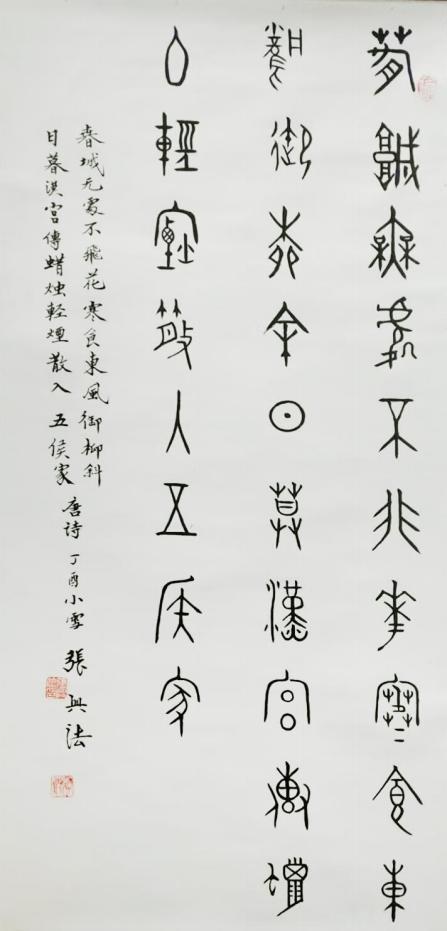 春城無處不非華寒食東
風御柳余日莫漢宮專蠟
輕煙散入五侯家
春城无處不飛花寒食東風御柳斜
日暮漢宮傳蜡烛輕煙散入五侯家 唐诗 丁酉小雪 張興法